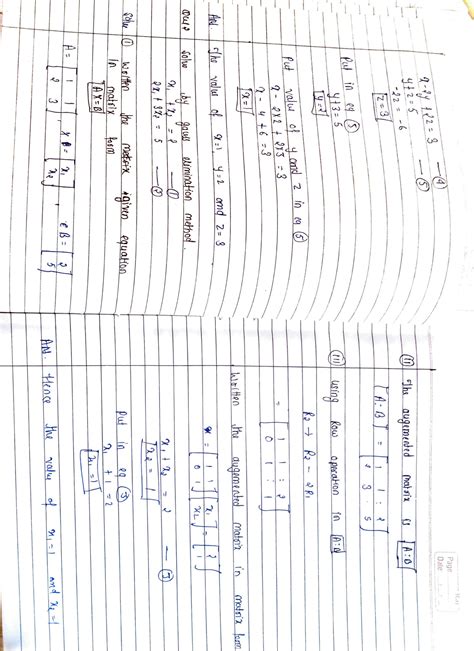 x - 2y + 2z = 3 — ④
y + z = 5 — ⑤
-2z = -6
z = 3
Put in eq ⑤
y + 3 = 5
y = 2
Put value of y and z in eq ④
x - 2×2 + 2×3 = 3
x - 4 + 6 = 3
x = 1
Ans. The value of x=1 y=2 and z=3
Ques solve by gauss elimination method.
x₁ + x₂ = 2 — ①
2x₁ + 3x₂ = 5 — ②
Solu ① Written the matrix given equation
in matrix form
AX=B
A = [1 1
2 3] , X = [x₁
x₂] , & B = [2
5]
Page
Date
ⅱ The augmented matrix is [A:B]
[A:B] = [1 1 : 2
2 3 : 5]
ⅲ Using Row operation in [A:B]
R₂ → R₂ - 2R₁
= [1 1 : 2
0 1 : 1]
Written the augmented matrix in matrix form
= [1 1
0 1] [x₁
x₂] = [2
1]
x₁ + x₂ = 2 — ③
x₂ = 1
Put in eq ③
x₁ + 1 = 2
x₁ = 1
Ans. Hence the value of x₁=1 and x₂=1